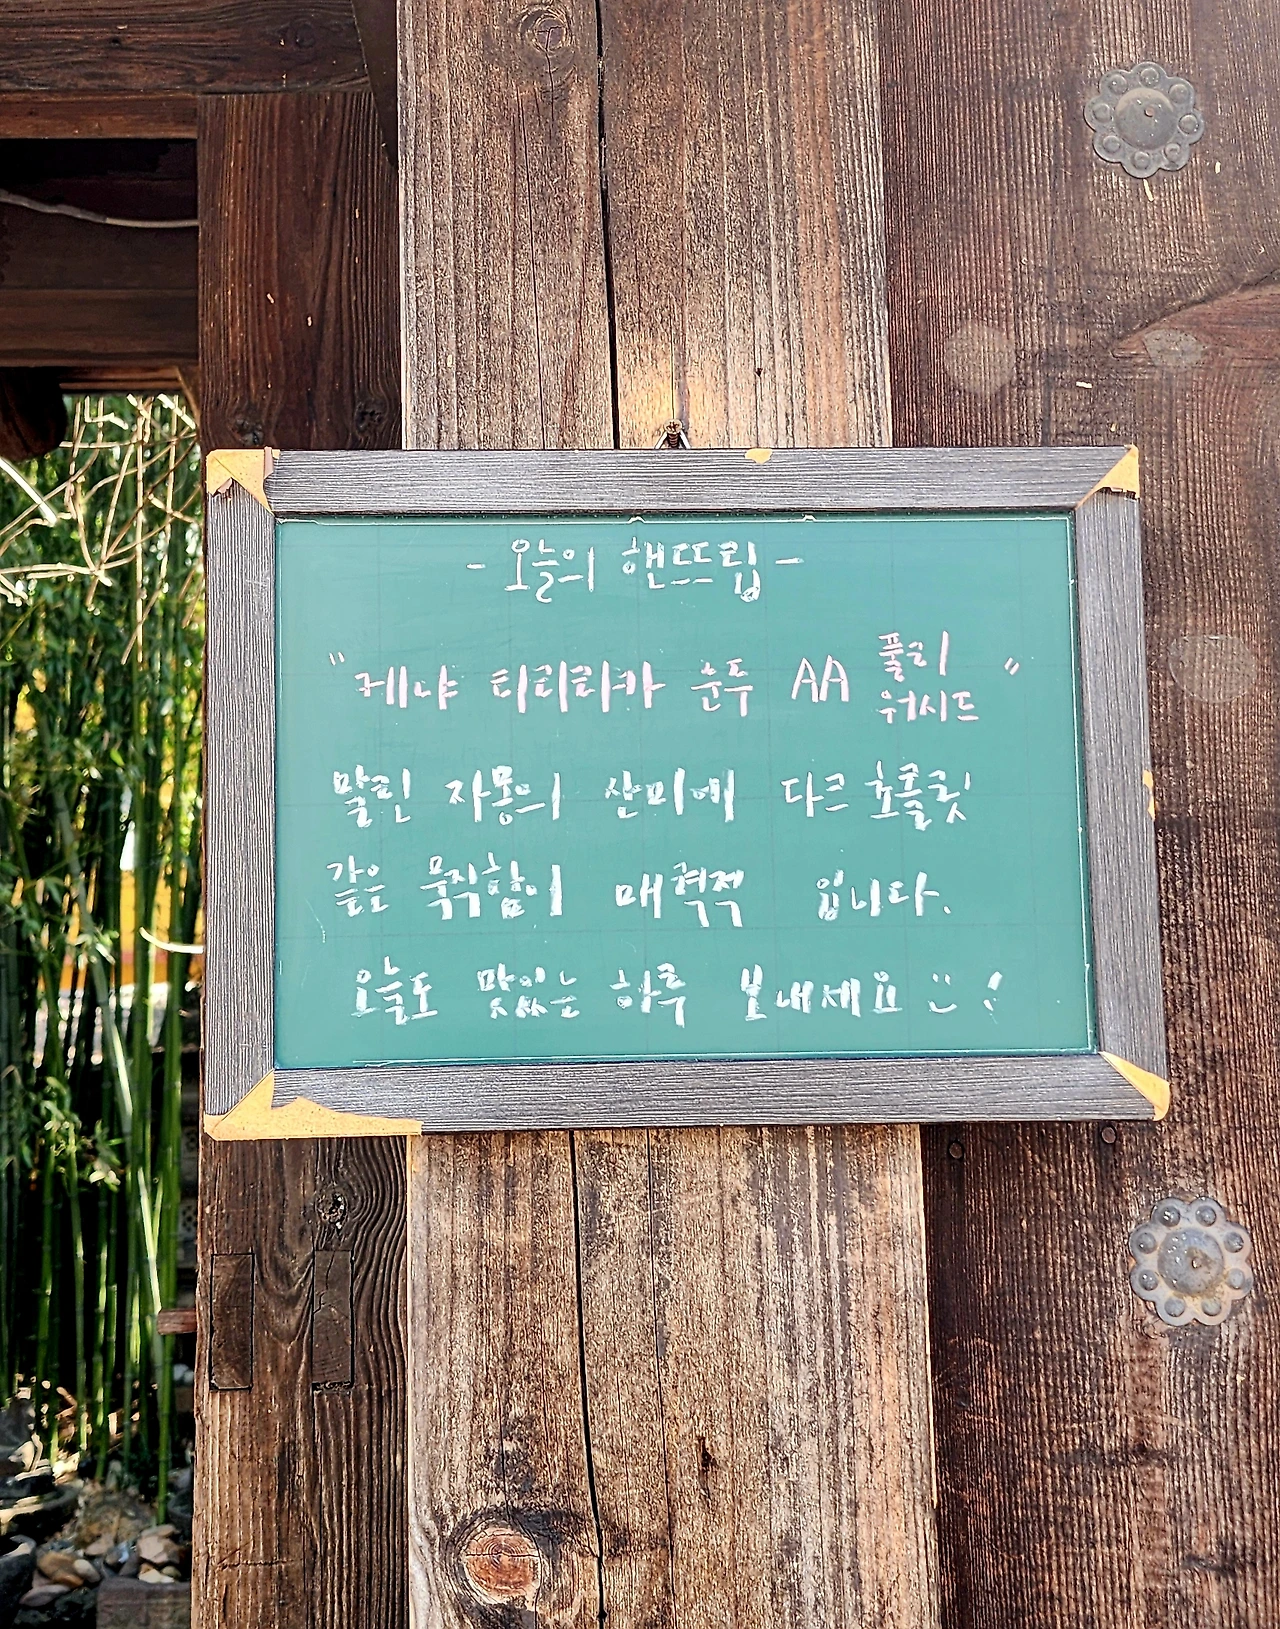 - 오늘의 핸뜨드립 -
"케냐 티리리카 운투 AA 풀리 워시드"
말린 자몽의 산미에 다크 초콜릿
같은 묵직함이 매력적 입니다.
오늘도 맛있는 하루 보내세요 :) !